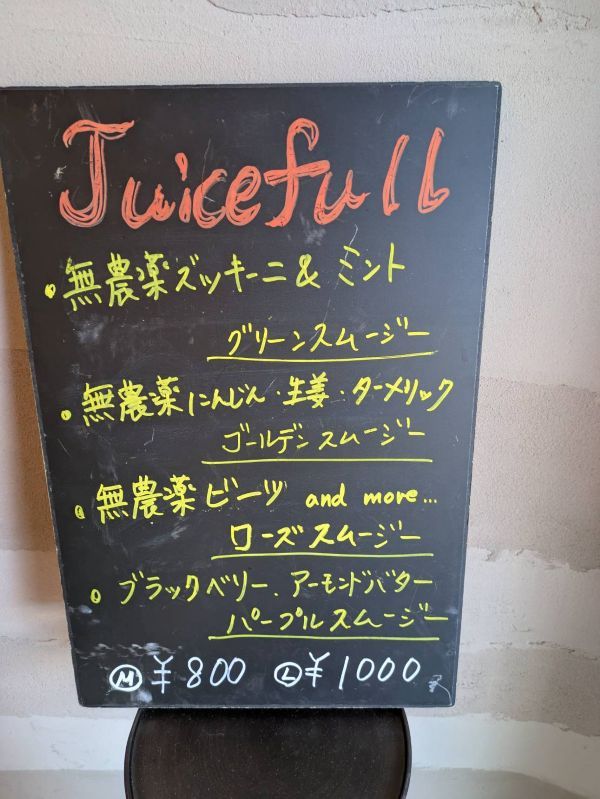 Juicefull
・無農薬ズッキーニ & ミント
グリーンスムージー
・無農薬にんじん・生姜・ターメリック
ゴールデンスムージー
・無農薬ビーツ and more...
ローズスムージー
・ブラックベリー、アーモンドバター
パープルスムージー
Ⓜ ¥800 Ⓛ ¥1000